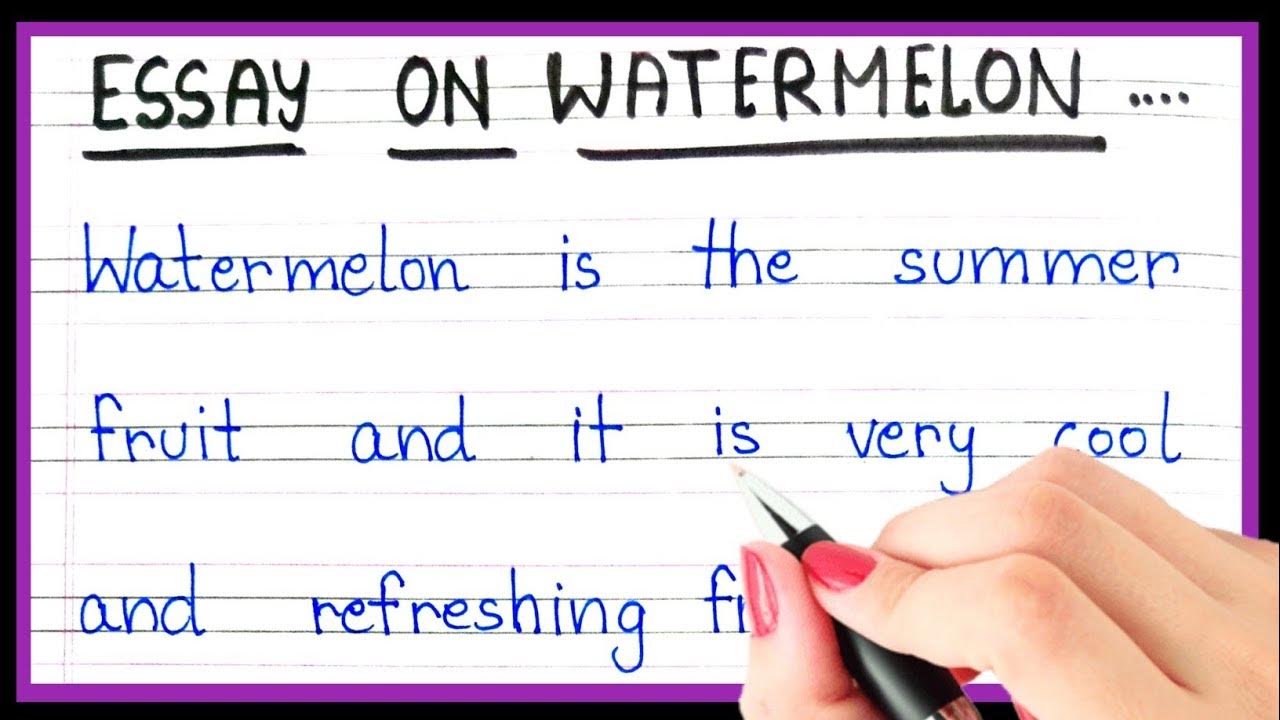 ESSAY ON WATERMELON ....
Watermelon is the summer
fruit and it is very cool
and refreshing